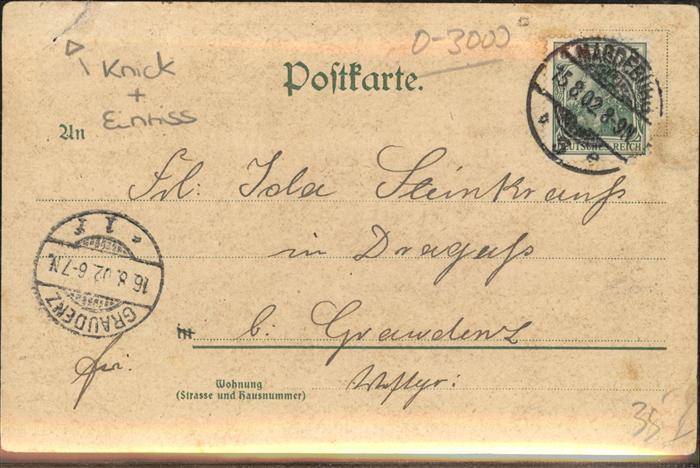 D-3000
Knick
+
Einriss
Postkarte.
MAGDEBURG
15.8.02.8-9N
* 3 e
DEUTSCHES REICH
An
Frl: Ida Steinkrauß
in Dragaß
GRAUDENZ
16.8.02.6-7N.
* 1 f
in b. Graudenz
frei.
Westpr:
Wohnung
(Strasse und Hausnummer)